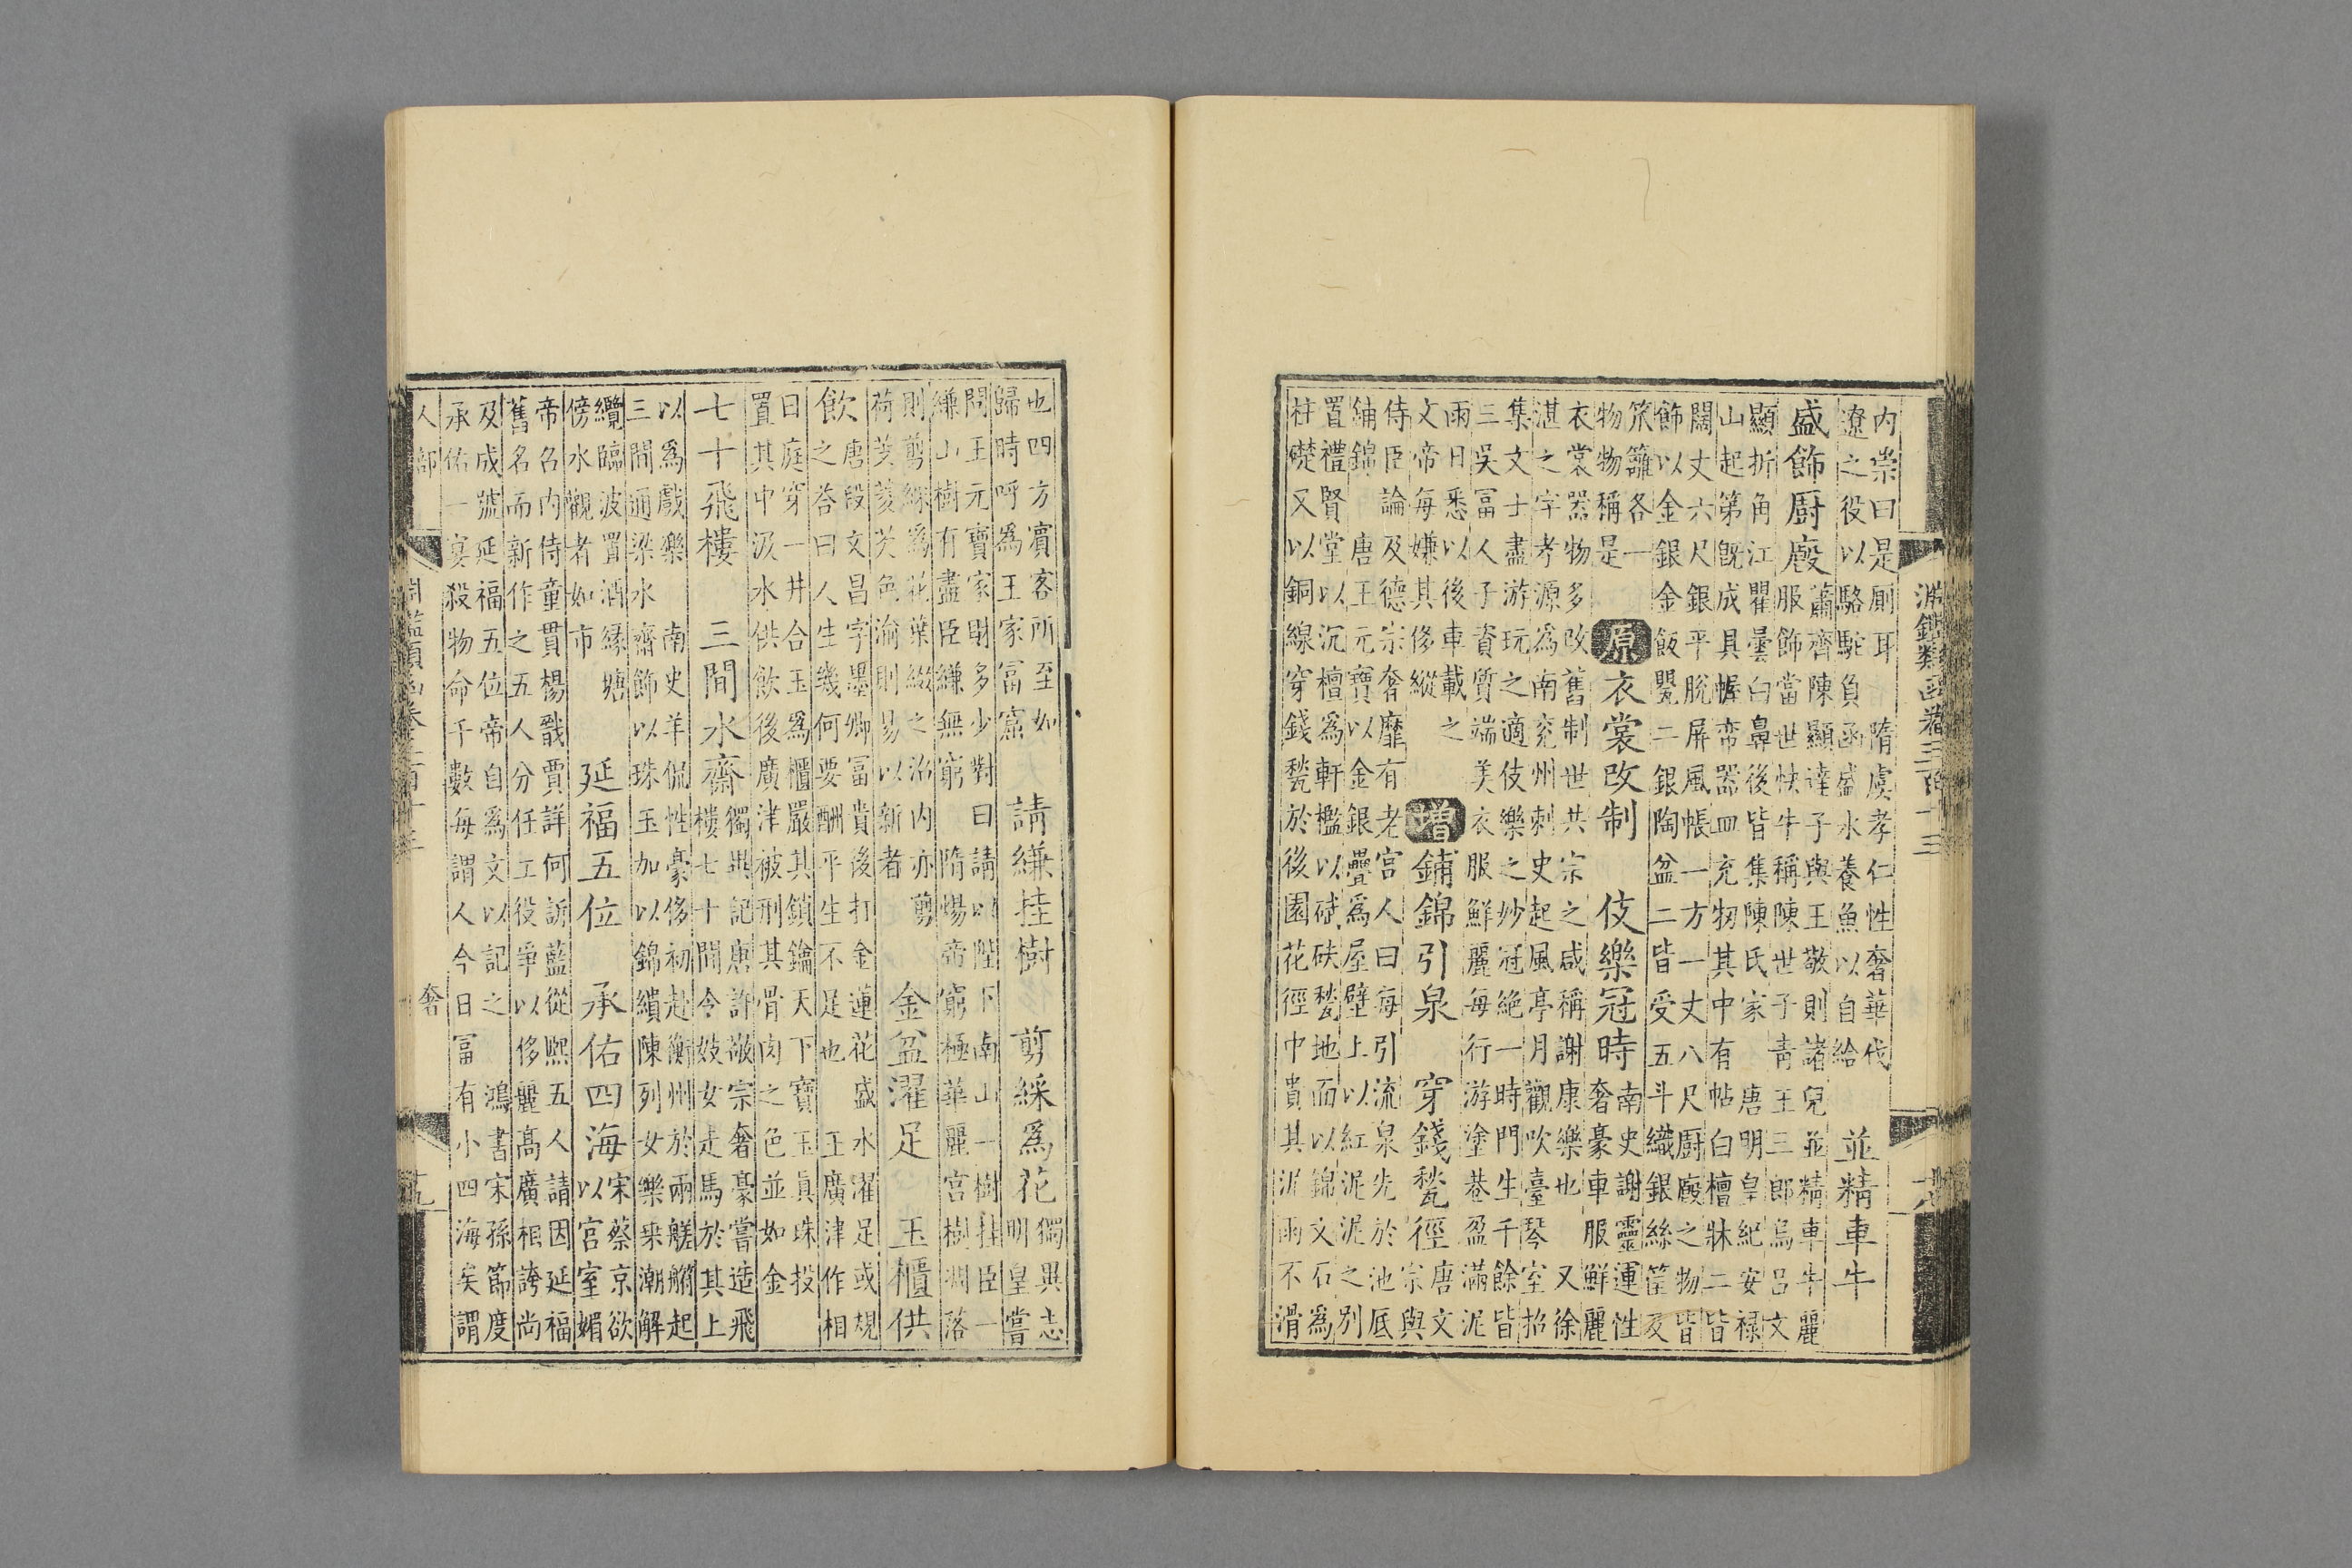 淵鑑類函卷三百十三
内崇曰是厠耳　隋虞孝仁性奢華伐
遼之役以駱駝負函盛水養魚以自給
並精車牛
盛飾厨廄
蕭齊陳顯達子與王敬則諸兒並精車牛麗
服飾當世快牛稱陳世子青王三郎烏呂文
顯折角江瞿曇白鼻後皆集陳氏家　唐明皇紀安禄
山起第旣成具幄帟器皿充牣其中有帖白檀牀二皆
闊丈六尺銀平脫屏風帳一方一丈八尺厨廄之物皆
飾以金銀金飯甖二銀陶盆二皆受五斗織銀絲筐及
笊籬各一
物物稱是
原
衣裳改制
伎樂冠時
南史謝靈運性
奢豪車服鮮麗
衣裳器物多改舊制世共宗之咸稱謝康樂也　又徐
湛之字孝源為南兖州刺史起風亭月觀吹臺琴室招
集文士盡游玩之適伎樂之妙冠絶一時門生千餘皆
三吳冨人子資質端美衣服鮮麗每行游塗巷盈滿泥
雨日悉以後車載之
文帝每嫌其侈縱
增
鋪錦引泉
穿錢甃徑
唐文
宗與
侍臣論及德宗奢靡有老宫人曰每引流泉先於池底
鋪錦　唐王元寶以金銀疊爲屋壁上以紅泥泥之别
置禮賢堂以沉檀爲軒檻以碔砆甃地面以錦文石爲
柱礎又以銅線穿錢甃於後園花徑中貴其泥雨不滑
也四方賓客所至如
歸時呼為王家冨窟
請縑挂樹
剪綵爲花
獨異志
明皇嘗
問王元寶家財多少對曰請以陛下南山一樹挂臣一
縑山樹有盡臣縑無窮　隋煬帝窮極華麗宫樹凋落
則剪綵爲花葉綴之沼内亦剪
荷芰菱芡色渝則易以新者
金盆濯足
玉櫃供
飲
唐段文昌字墨卿冨貴後打金蓮花盛水濯足或規
之荅曰人生幾何要酬平生不足也　王廣津作相
日庭穿一井合玉爲櫃嚴其鎖鑰天下寶玉眞珠投
置其中汲水供飲後廣津被刑其骨肉之色並如金
七十飛樓
三間水齋
獨異記唐許敬宗奢豪嘗造飛
樓七十間令妓女走馬於其上
以爲戲樂　南史羊侃性豪侈初赴衡州於兩艖䑰起
三間通梁水齋飾以珠玉加以錦繢陳列女樂乘潮解
纜臨波置酒緣塘
傍水觀者如市
延福五位
承佑四海
宋蔡京欲
以宫室媚
帝名内侍童貫楊戩賈詳何訢藍從熙五人請因延福
舊名而新作之五人分任工役爭以侈麗髙廣相誇尚
及成號延福五位帝自爲文以記之　鴻書宋孫節度
承佑一宴殺物命千數每謂人今日冨有小四海矣謂
人部
奢